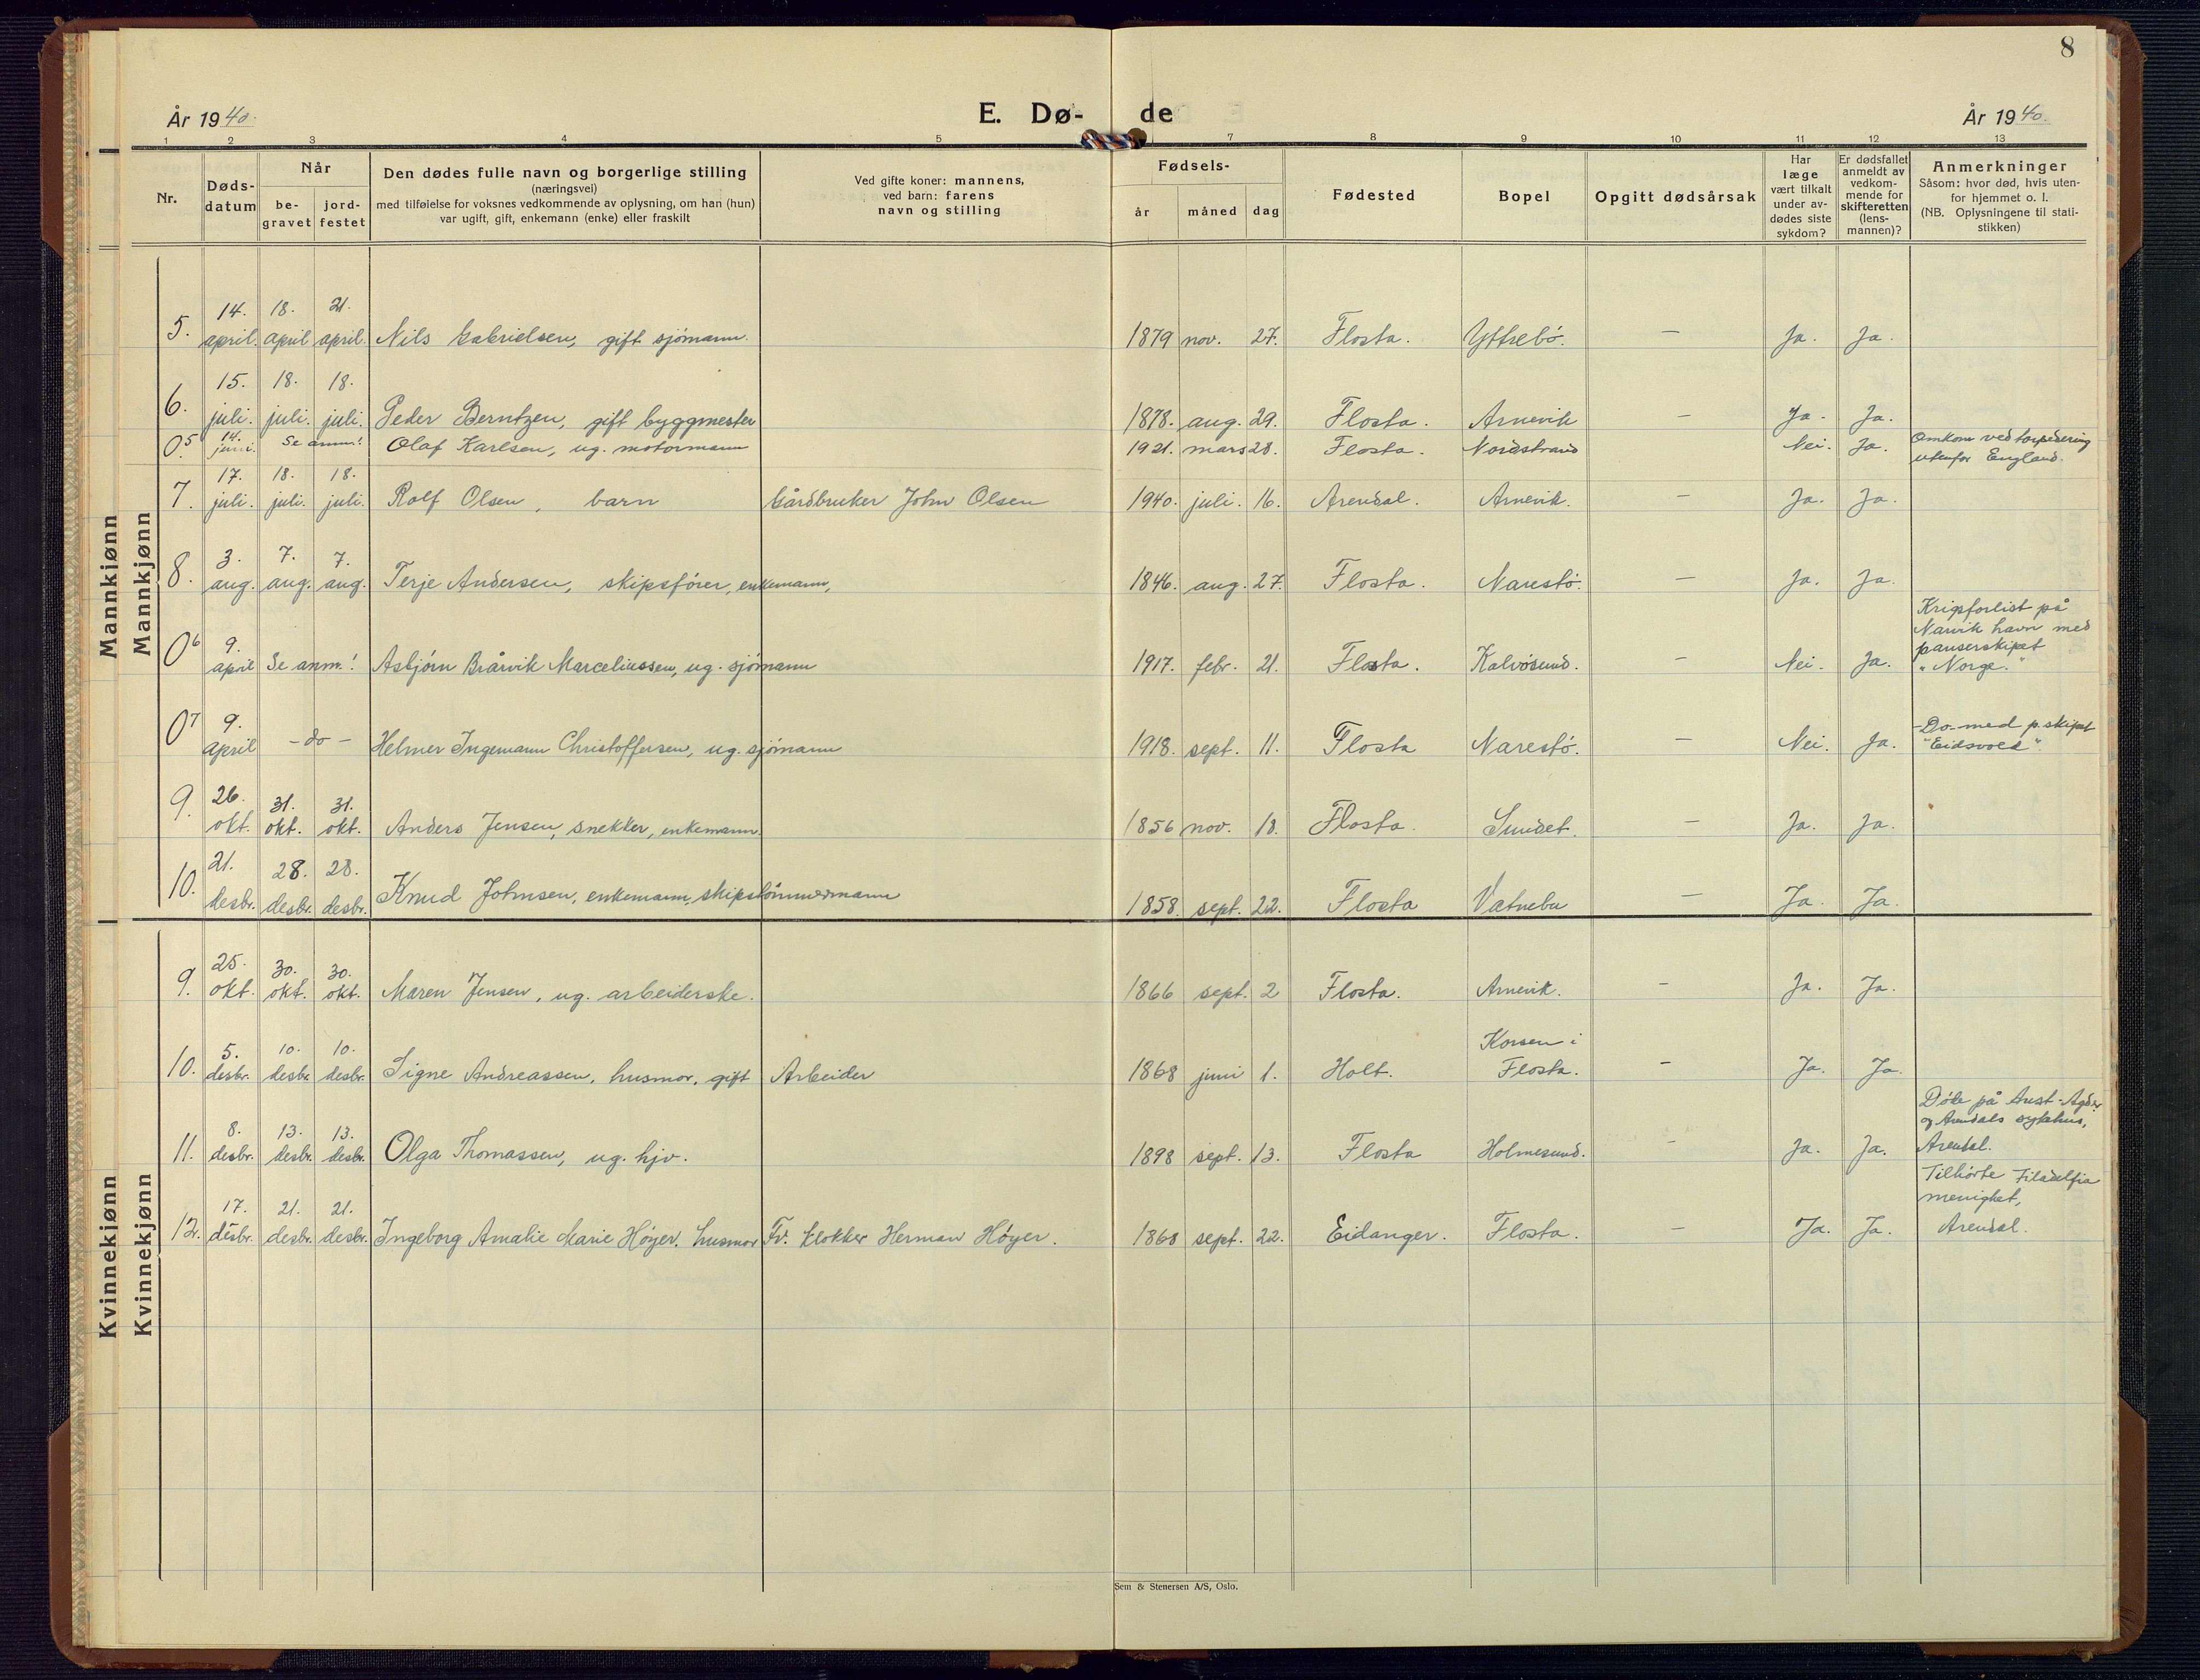 8
År 1940.
E. Dø- de
År 1940.
1 2 3 4 5 7 8 9 10 11 12 13
Nr.
Døds-
datum
Når
be-
gravet
jord-
festet
Den dødes fulle navn og borgerlige stilling
(næringsvei)
med tilføielse for voksnes vedkommende av oplysning, om han (hun)
var ugift, gift, enkemann (enke) eller fraskilt
Ved gifte koner: mannens,
ved barn: farens
navn og stilling
Fødsels-
år måned dag
Fødested
Bopel
Opgitt dødsårsak
Har
læge
vært tilkalt
under av-
dødes siste
sykdom?
Er dødsfallet
anmeldt av
vedkom-
mende for
skifteretten
(lens-
mannen)?
Anmerkninger
Såsom: hvor død, hvis uten-
for hjemmet o. l.
(NB. Oplysningene til stati-
stikken)
Mannkjønn
Mannkjønn
14. 18. 21.
5. april. april april. Nils Gabrielsen, gift sjømann. 1879 nov. 27. Flosta. Yttrebø. — Ja. Ja.
15. 18. 18.
6. juli. juli. juli. Peder Berntzen, gift byggmester 1878. aug. 29. Flosta. Arnevik — Ja. Ja.
14.
05. juni. Se anm! Olaf Karlsen, ug. motormann 1921. mars 28. Flosta. Nordstrand Nei. Ja. Omkom ved torpedering
utenfor England.
17. 18. 18.
7. juli. juli. juli. Rolf Olsen, barn Gårdbruker John Olsen 1940. juli. 16. Arendal. Arnevik. — Ja. Ja.
3. 7. 7.
8. aug. aug. aug. Terje Andersen, skipsfører, enkemann, 1846. aug. 27. Flosta. Narestø. — Ja. Ja.
Krigsforlist på
Narvik havn med
panserskipet
"Norge."
9.
06 april Se anm.! Asbjørn Bråvik Marceliussen, ug. sjømann 1917. febr. 21. Flosta. Kalvøsund. — Nei. Ja.
9.
07 april - do - Helmer Ingemann Christoffersen, ug. sjømann 1918. sept. 11. Flosta Narestø. — Nei. Ja. -Do- med p.skipet
"Eidsvold".
26. 31. 31.
9. okt. okt. okt. Anders Jensen, snekker, enkemann. 1856 nov. 18. Flosta. Sundet. — Ja. Ja.
21. 28. 28.
10. desbr. desbr. desbr. Knud Johnsen, enkemann, skipstømmermann 1858. sept. 22. Flosta Vatnebu — Ja. Ja.
Kvinnekjønn
Kvinnekjønn
25. 30. 30.
9. okt. okt. okt. Maren Jensen, ug. arbeiderske. 1866 sept. 2 Flosta. Arnevik. — Ja. Ja.
5. 10. 10. Korsen i
10. desbr. desbr. desbr. Signe Andreassen, husmor, gift Arbeider 1868 juni 1. Holt. Flosta. — Ja. Ja.
Døde på Aust-Agder
og Arendals sykehus,
Arendal.
8. 13. 13.
11. desbr. desbr. desbr. Olga Thomassen, ug. hjv. 1898 sept. 13. Flosta Holmesund. - Ja. Ja.
Tilhørte Filadelfia
menighet,
Arendal.
17. 21. 21.
12. desbr. desbr. desbr. Ingeborg Amalie Marie Høyer. husmor Fv. klokker Herman Høyer. 1868 sept. 22. Eidanger. Flosta. — Ja. Ja.
Sem & Stenersen A/S, Oslo.